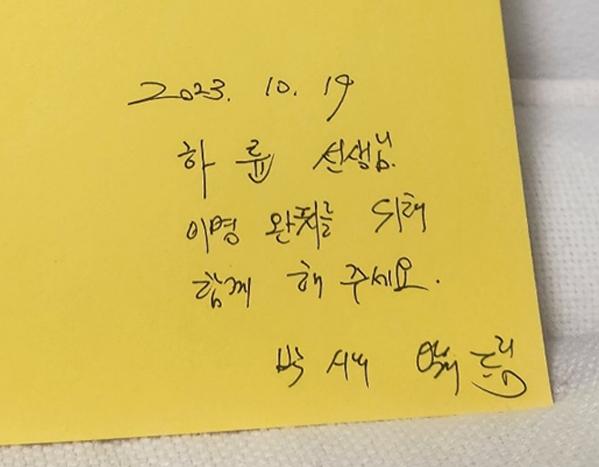 2023. 10. 19
하 륜 선생님.
이명 완치를 위해
함께 해 주세요.
박